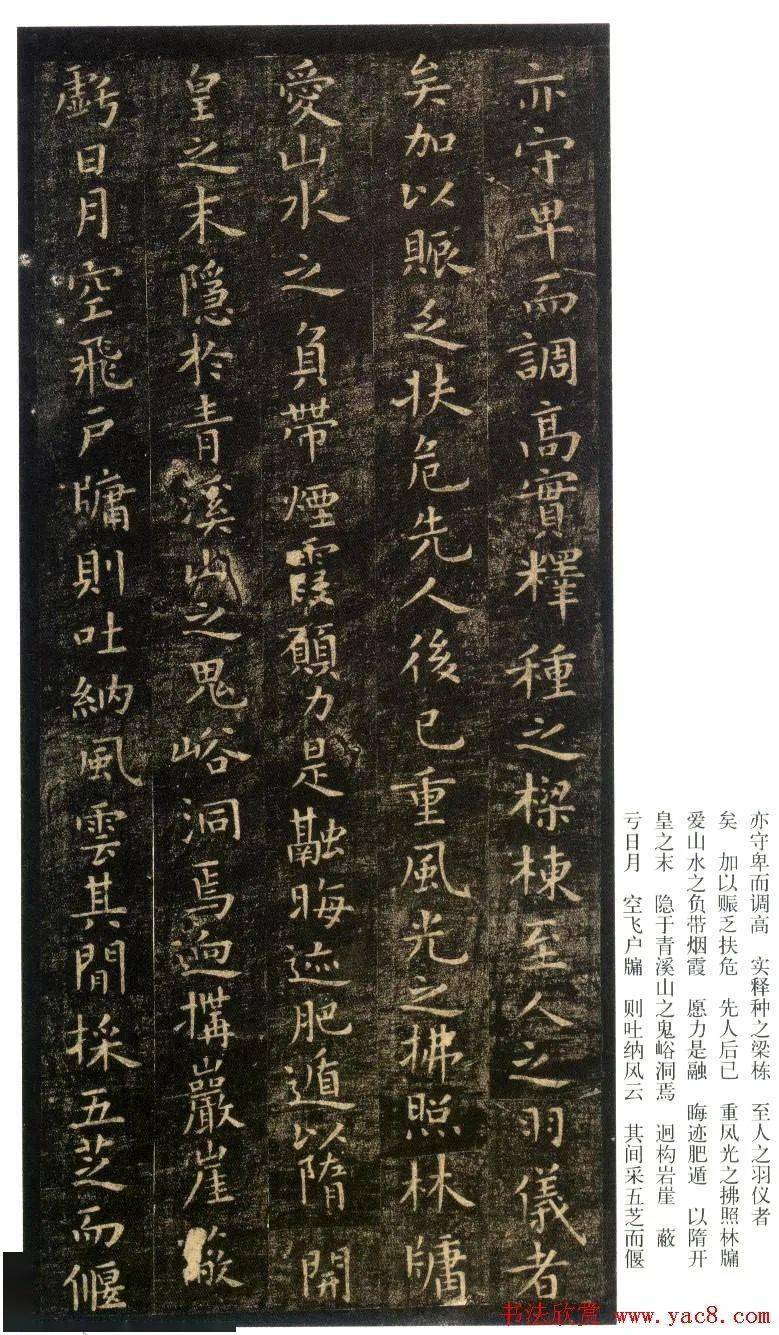 亦守卑而調高實釋種之樑棟至人之羽儀者
矣加以賑乏扶危先人後已重風光之拂照林牗
愛山水之負帶煙霞願力是融晦迹肥遁以隋開
皇之末隱於青溪山之鬼峪洞焉迥構巖崖蔽
虧日月空飛戶牗則吐納風雲其間採五芝而偃
亦守卑而调高 实释种之梁栋 至人之羽仪者
矣 加以赈乏扶危 先人后已 重风光之拂照林牖
爱山水之负带烟霞 愿力是融 晦迹肥遁 以隋开
皇之末 隐于青溪山之鬼峪洞焉 迥构岩崖 蔽
亏日月 空飞户牖 则吐纳风云 其间采五芝而偃
书法欣赏 www.yac8.com